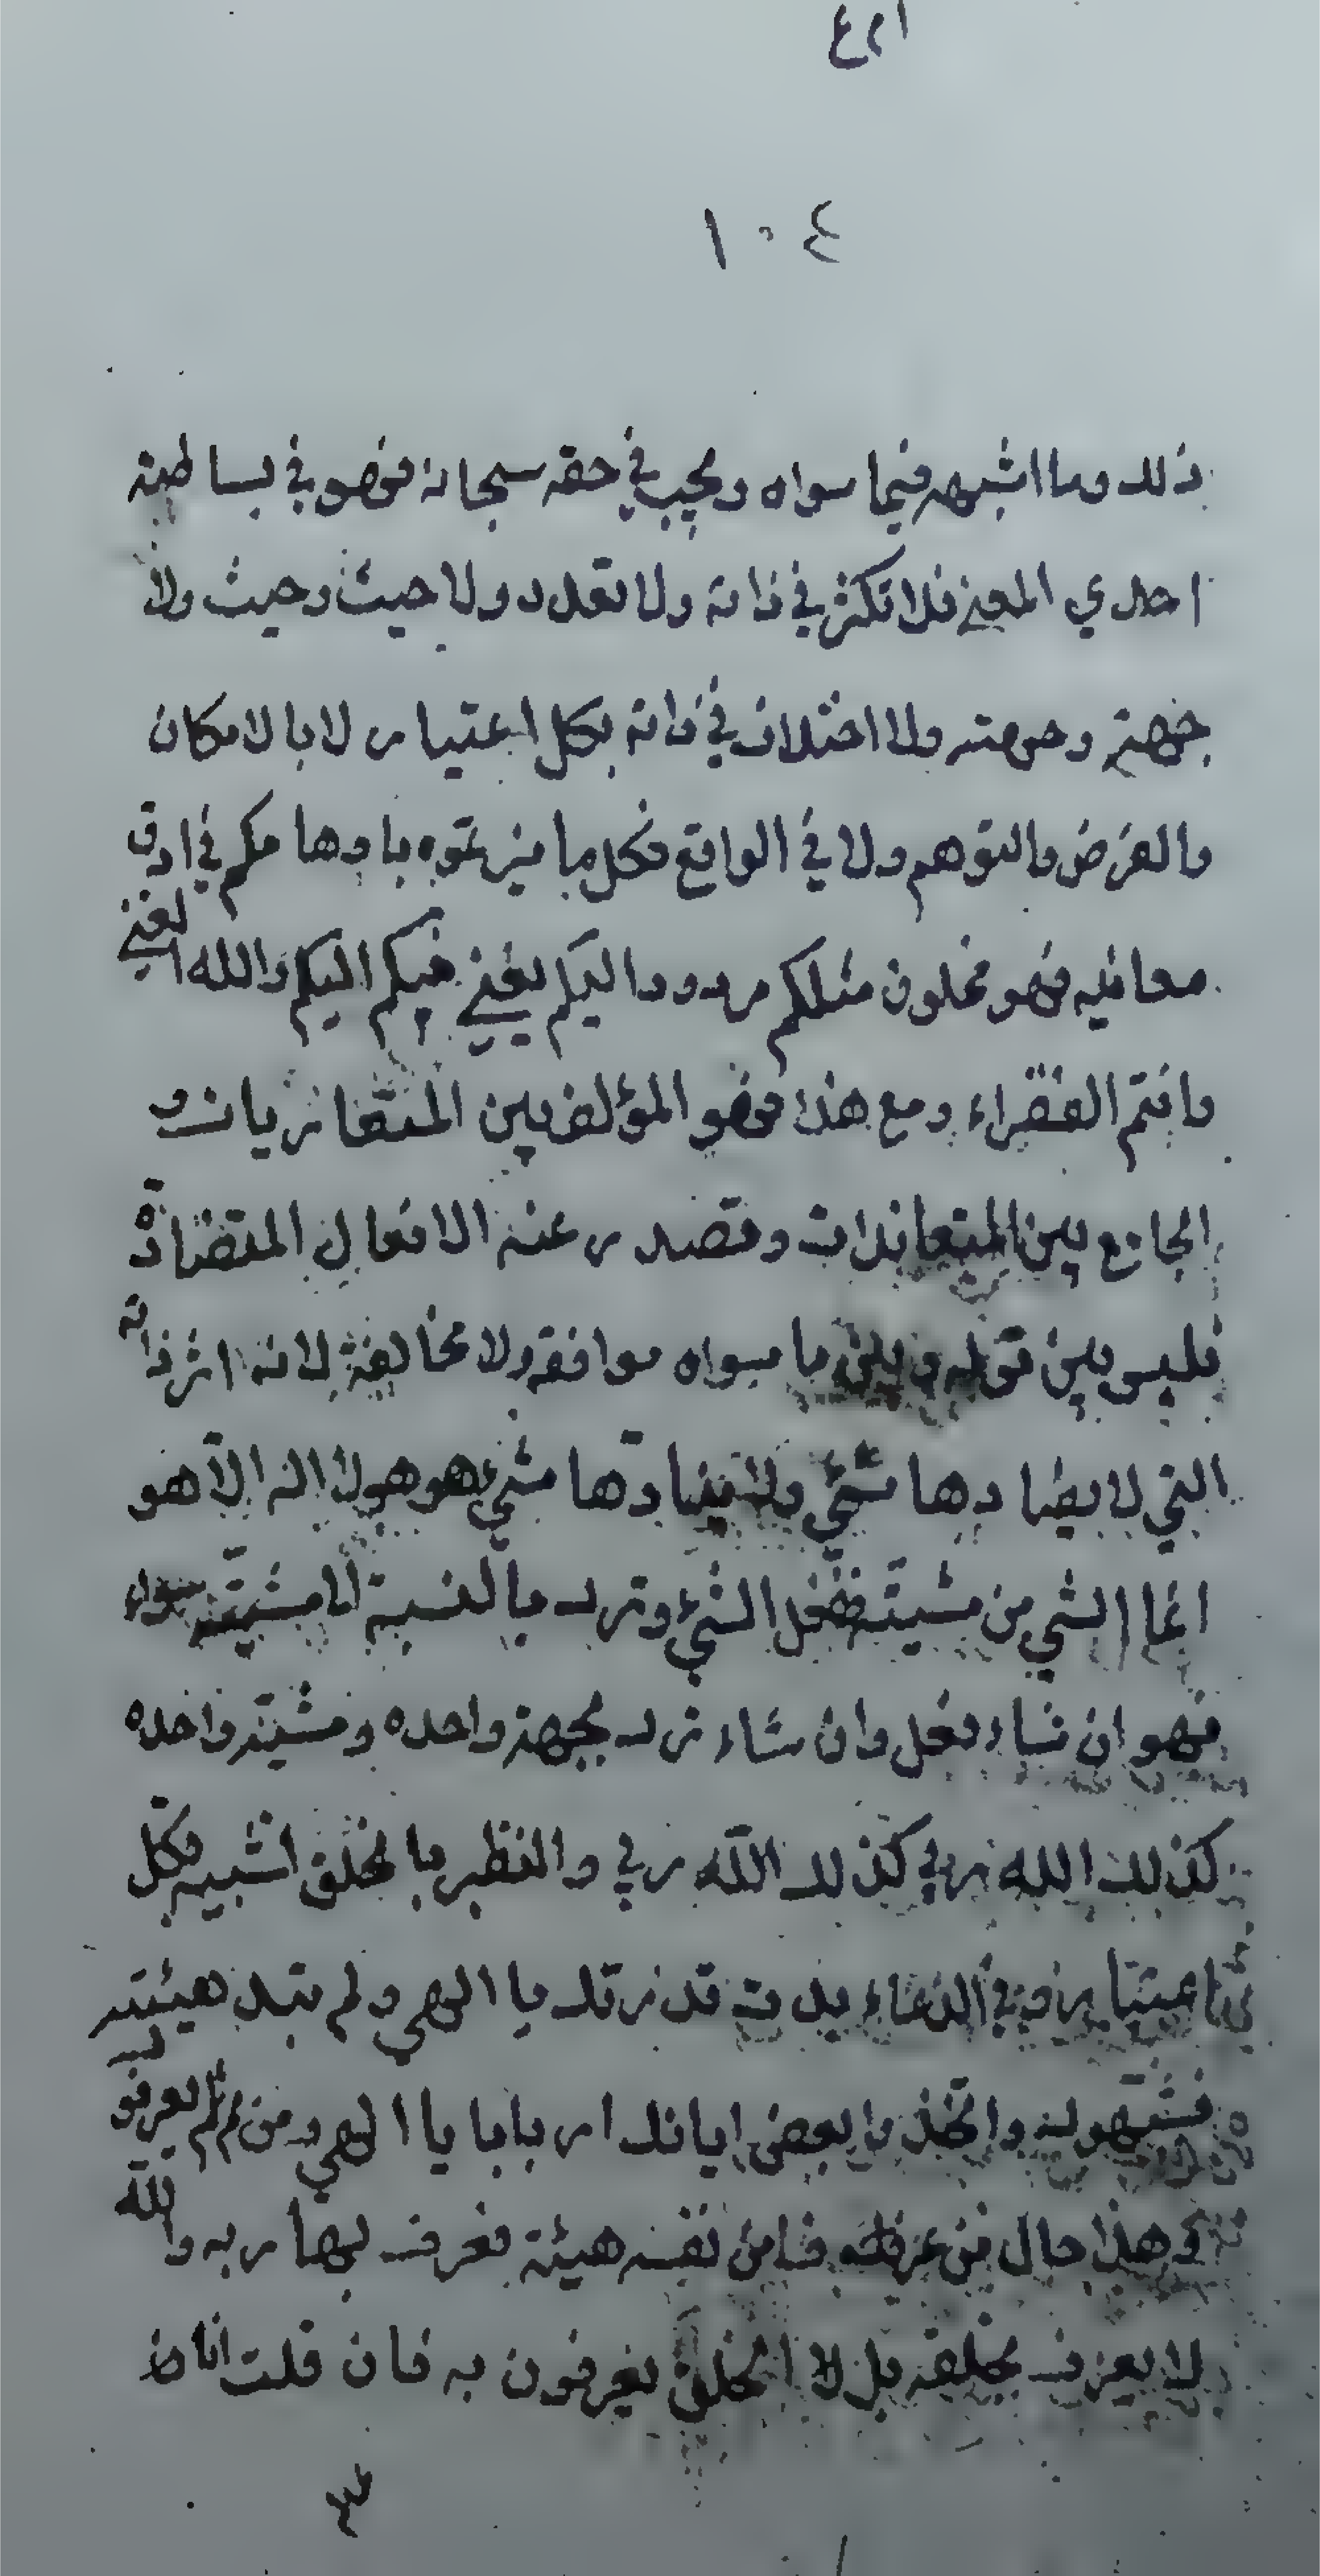 ١٠٤
ذلك وما اشبهه فيما سواه ويجب في حقه سبحانه فهو في بساطته
احدي المعني فلا تكثر في ذاته ولا تعدد ولا حيث وحيث ولا
جهته وجهته ولا اختلاف في ذاته بكل اعتبار لا بالامكان
والفرض والتوهم ولا في الواقع فكل ما ميزتموه باوهامكم في ادق
معانيه فهو مخلوق مثلكم مردود اليكم يعني فيكم اليكم والله الغني
وانتم الفقراء ومع هذا فهو المؤلف بين المتعاديات و
الجامع بين المتعاندات وتصدر عنه الافعال المتضادة
فليس بين قوله وبين ما سواه موافقه ولا مخالفة لانه اثر ذاته
التي لا يضادها شيء ولا ينادها شيء هو هو لا اله الا هو
انما الشي من مشيته ففعل الشيء وترك بالنسبة مشيته سواء
فهو ان شاء فعل وان شاء ترك بجهة واحده ومشيته واحده
كذلك الله ربي كذلك الله ربي والنظر بالخلق اشبيه بكل
اعتبار وفي الدعاء بدت قدرتك يا الهي ولم تبد هيئته
فشبهوك واتخذوا بعض اياتك اربابا يا الهي ومن ثم لم يعرفوك
وهذا حال من عرف من نفسه هيئة فعرف بها ربه والله
لا يعرف بخلقه بل الخلق يعرفون به فان قلت انا